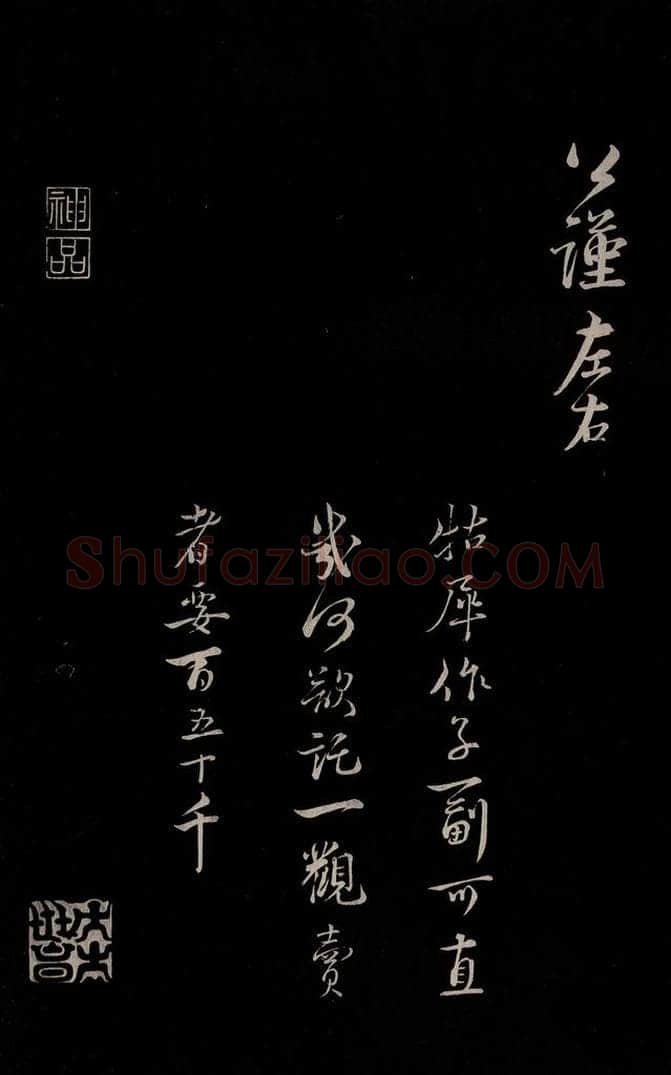 公謹左右
牯犀作子一副可直
幾何欲託一觀賣
者要百五十千
神品
Shufazitiao.COM